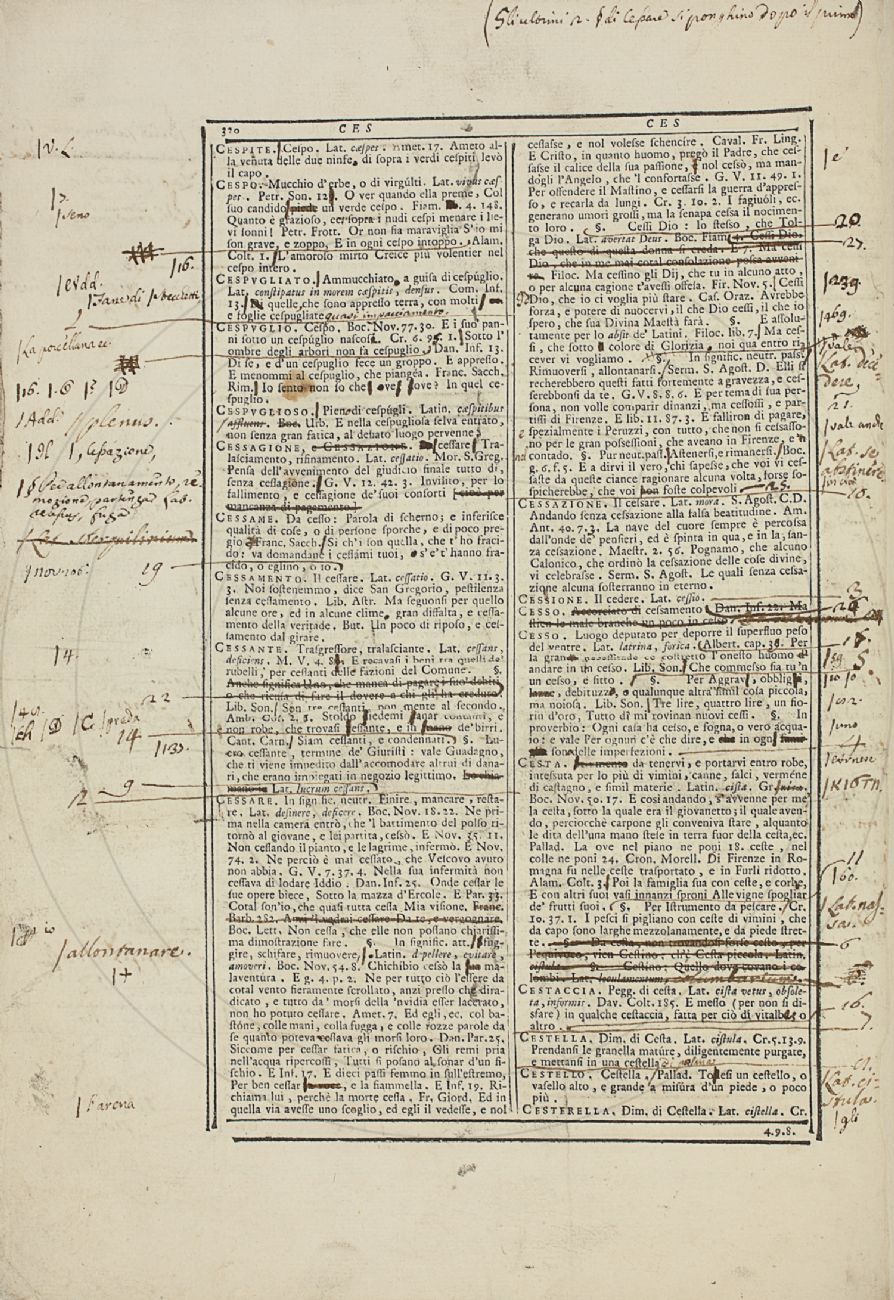 (Gli ultimi 2. § di cessare si ponghino dopo il primo)
320 CES
CES
CESPITE. Cespo. Lat. cæspes. Amet. 17. Ameto al-
la venuta delle due ninfe, di sopra i verdi cespiti levò
il capo.
CESPO. Mucchio d'erbe, o di virgulti. Lat. vivus cæs
pes. Petr. Son. 12 O ver quando ella preme, Col
suo candido piede un verde cespo. Fiam. 4. 148.
Quanto è grazioso, cersopra i nudi cespi menare i lie-
vi sonni! Petr. Frott. Or non fia maraviglia S'io mi
son grave, e zoppo, E in ogni cespo intoppo. Alam.
Colt. 1. L'amoroso mirto Creice più volentier nel
cespo intero.
CESPUGLIATO. Ammucchiato a guisa di cespuglio.
Lat. constipatus in morem cæspitis, densus. Com. Inf.
13. quelle, che sono appresso terra, con molti
e foglie cespugliate
CESPVGLIO. Cespo. Boc. Nov. 77. 30. E i suo' pan-
ni sotto un cespuglio nascosi. Cr. 6. 95. 1. Sotto l'
ombre degli arbori non fa cespuglio. Dan. Inf. 13.
Di se, e d'un cespuglio fece un groppo. E appresso.
E menommi al cespuglio, che piangea. Franc. Sacch.
Rim. Io sento non so che ove? ove? In quel ce-
spuglio.
CESPVGLIOSO. Pieno di cespugli. Latin. cæspitibus
Urb. E nella cespugliosa selva entrato,
non senza gran fatica, al debato luogo pervenne.
CESSAGIONE, e CESSAZIONE. cessare Tra-
lasciamento, rifinamento. Lat. cessatio. Mor. S. Greg.
Pensa dell'avvenimento del giudicio finale tutto di,
senza cessagione. G. V. 12. 42. 3. Invilito, per lo
fallimento, e cessagione de' suoi consorti cioè per
mancanza di pagamento.
CESSAME. Da cesso: Parola di scherno; e inferisce
qualità di cose, o di persone sporche, e di poco pre-
gio. Franc. Sacch. Si ch'i son quella, che t'ho fraci-
do: va domandane i cessami tuoi, o s'e' t'hanno fra-
cido, o eglino, o io.
CESSAMENTO. Il cessare. Lat. cessatio. G. V. 11. 3.
3. Noi sostenemmo, dice San Gregorio, pestilenza
senza cessamento. Lib. Astr. Ma seguonsi per quello
alcune ore, ed in alcune clime, gran disfalta, e cessa-
mento della veritade. But. Un poco di riposo, e ces-
samento dal girare.
CESSANTE. Trasgressore, tralasciante. Lat. cessans,
deficiens. M. V. 4. 8 E rocavasi i beni tra quelli de'
rubelli, per cessanti delle fazioni del Comune. §.
Anche significa Uno, che manca di pagare i suo' debiti,
o che ricusa di fare il dovere a chi gli ha creduto.
Lib. Son. Son tre cessanti, non mente al secondo.
Amb. Cof. 2. 1. Stoldo
non robe, che trovasi cessante, e in de' birri.
Cant. Carn. Siam cessanti, e condennati. §. Lu-
cro cessante, termine de' Giuristi: vale Guadagno,
che ti viene impedito dall'accomodare altrui di dana-
ri, che erano impiegati in negozio legittimo.
Lat. lucrum cessans.
CESSARE. In signific. neutr. Finire, mancare, resta-
re. Lat. desinere, deficere. Boc. Nov. 18. 22. Ne pri-
ma nella camera entrò, che 'l battimento del polso ri-
tornò al giovane, e lei partita, cessò. E Nov. 35. 11.
Non cessando il pianto, e le lagrime, infermò. E Nov.
74. 2. Ne perciò è mai cessato, che Vescovo avuto
non abbia. G. V. 7. 37. 4. Nella sua infermità non
cessava di lodare Iddio. Dan. Inf. 25. Onde cessar le
sue opere biece, Sotto la mazza d'Ercole. E Par. 33.
Cotal son'io, che quasi tutta cessa Mia visione. Franc.
Barb. 282. Anzi 'l vedrai cessare Da te, e vergognare.
Boc. Lett. Non cessa, che elle non possano chiarissi-
ma dimostrazione fare. §. In signific. att. sfug-
gire, schifare, rimuovere, Latin. depellere, evitare,
amovere. Boc. Nov. 54. 8. Chichibio cessò la sua ma-
laventura. E g. 4. p. 2. Ne per tutto ciò l'essere da
cotal vento fieramente scrollato, anzi presso che dira-
dicato, e tutto da' morsi della 'nvidia esser lacerato,
non ho potuto cessare. Amet. 7. Ed egli, ec. col ba-
stone, colle mani, colla fugga, e colle rozze parole da
se quanto poteva cessava gli morsi loro. Dan. Par. 25.
Siccome per cessar fatica, o rischio, Gli remi pria
nell'acqua ripercossi, Tutti si posano al sonar d'un fi-
schio. E Inf. 17. E dieci passi femmo in sull'estremo,
Per ben cessar la rena, e la fiammella. E Inf. 19. Ri-
chiama lui, perchè la morte cessa. Fr. Giord. Ed in
quella via avesse uno scoglio, ed egli il vedesse, e nol
cessasse, e nol volesse schencire. Caval. Fr. Ling.
E Cristo, in quanto huomo, pregò il Padre, che ces-
sasse il calice della sua passione, nol cessò, ma man-
dògli l'Angelo, che 'l confortasse. G. V. 11. 49. 1.
Per offendere il Mastino, e cessarsi la guerra d'appres-
so, e recarla da lungi. Cr. 3. 10. 2. I fagiuoli, ec.
generano umori grossi, ma la senapa cessa il nocimen-
to loro. §. Cessi Dio: lo stesso, che Tol-
ga Dio. Lat. avertat Deus. Boc. Fiam. 4. Cessi Dio,
che questo di questa donna si creda. E 7. Ma cessi
Dio, che in me mai cotal consolazione possa avveni-
re. Filoc. Ma cessino gli Dij, che tu in alcuno atto,
o per alcuna cagione t'avessi offesa. Fir. Nov. 5. Cessi
Dio, che io ci voglia più stare. Cas. Oraz. Avrebbe
forza, e potere di nuocervi, il che Dio cessi, il che io
spero, che sua Divina Maestà farà. §. E assolu-
tamente per lo absit de' Latini. Filoc. lib. 7. Ma ces-
si, che sotto il colore di Glorizia, noi qua entro ri-
cever vi vogliamo. §. In signific. neutr. pass.
Rimuoversi, allontanarsi. Serm. S. Agost. D. Elli si
recherebbero questi fatti fortemente a gravezza, e ces-
serebbonsi da te. G. V. 8. 8. 6. E per tema di sua per-
sona, non volle comparir dinanzi, ma cessossi, e par-
tissi di Firenze. E lib. 11. 87. 3. E falliron di pagare,
e spezialmente i Peruzzi, con tutto, che non si cessasso-
no per le gran possessioni, che aveano in Firenze, e 'n
contado. §. Pur neut. pass. Astenersi, e rimanersi. Boc.
g. 6. f. 5. E a dirvi il vero, chi sapesse, che voi vi ces-
saste da queste ciance ragionare alcuna volta, forse so-
spicherebbe, che voi non foste colpevoli.
CESSAZIONE. Il cessare. Lat. mora. S. Agost. C. D.
Andando senza cessazione alla falsa beatitudine. Am.
Ant. 40. 7. 3. La nave del cuore sempre è percossa
dall'onde de' pensieri, ed è spinta in qua, e in la, san-
za cessazione. Maestr. 2. 56. Pognamo, che alcuno
Calonico, che ordinò la cessazione delle cose divine,
vi celebrasse. Serm. S. Agost. Le quali senza cessa-
zione alcuna sosterranno in eterno.
CESSIONE. Il cedere. Lat. cessio.
CESSO. Accorciato di cessamento Dan. Inf. 22. Ma
stien le male branche un poco in cesso.
CESSO. Luogo deputato per deporre il superfluo peso
del ventre. Lat. latrina, forica. Albert. cap. 38. Per
la grande necessitade fu costretto l'onesto huomo
andare in un cesso. Lib. Son. Che commesso fia tu 'n
un cesso, e sitto. §. Per Aggravj, obblighi,
debituzzi, o qualunque altra simil cosa piccola,
ma noiosa. Lib. Son. Tre lire, quattro lire, un fio-
rin d'oro, Tutto dì mi rovinan nuovi cessi. §. In
proverbio: Ogni casa ha cesso, e fogna, o vero acqua-
io: e vale Per ognun c'è che dire, e in ogni
son delle imperfezioni.
CESTA. da tenervi, e portarvi entro robe,
intessuta per lo più di vimini, canne, salci, verméne
di castagno, e simil materie. Latin. cista. Gr.
Boc. Nov. 50. 17. E così andando, s'avvenne per me'
la cesta, sotto la quale era il giovanetto; il quale aven-
do, perciocchè carpone gli conveniva stare, alquanto
le dita dell'una mano stese in terra fuor della cesta, ec.
Pallad. La ove nel piano ne poni 18. ceste, nel
colle ne poni 24. Cron. Morell. Di Firenze in Ro-
magna fu nelle ceste trasportato, e in Furlì ridotto.
Alam. Colt. 3. Poi la famiglia sua con ceste, e corbe,
E con altri suoi vasi innanzi sproni Alle vigne spogliar
de' frutti suoi. §. Per Istrumento da pescare. Cr.
10. 37. 1. I pesci si pigliano con ceste di vimini, che
da capo sono larghe mezzolanamente, e da piede stret-
te. §. Da cesta, non trovandosi forse cesto, per
l'equivoco, vien Cestino: ch'è Cesta piccola. Latin.
cistula. §. Cestino: Quello dove covano i co-
lombi. Lat. loculamentum.
CESTACCIA. Pegg. di cesta. Lat. cista vetus, obsole-
ta, informis. Dav. Colt. 185. E messo (per non si di-
sfare) in qualche cestaccia, fatta per ciò di vitalbe, o
altro.
CESTELLA. Dim. di Cesta. Lat. cistula. Cr. 5. 13. 9.
Prendansi le granella mature, diligentemente purgate,
e mettansi in una cestella
CESTELLO. Cestella. Pallad. Tolesi un cestello, o
vasello alto, e grande a misura d'un piede, o poco
più.
CESTERELLA. Dim. di Cestella. Lat. cistella. Cr.
4. 9. 8.
v. L.
seno
16.
Add.
plenus.
cessazione,
allontanamento, re-
mozione, partenza Lat.
nov. 106.
19
14.
22
14
133.
9
2
allontanare.
l'arena
è
20.
27.
239.
169.
vale
Lat. dece-
dere,
21.
vale anche
Lat. se
abstinere
10.
3
26
18.
uno
11
160.
Lat. nas-
sa.
6
16.
7.
Lat. ci-
stula.
gli